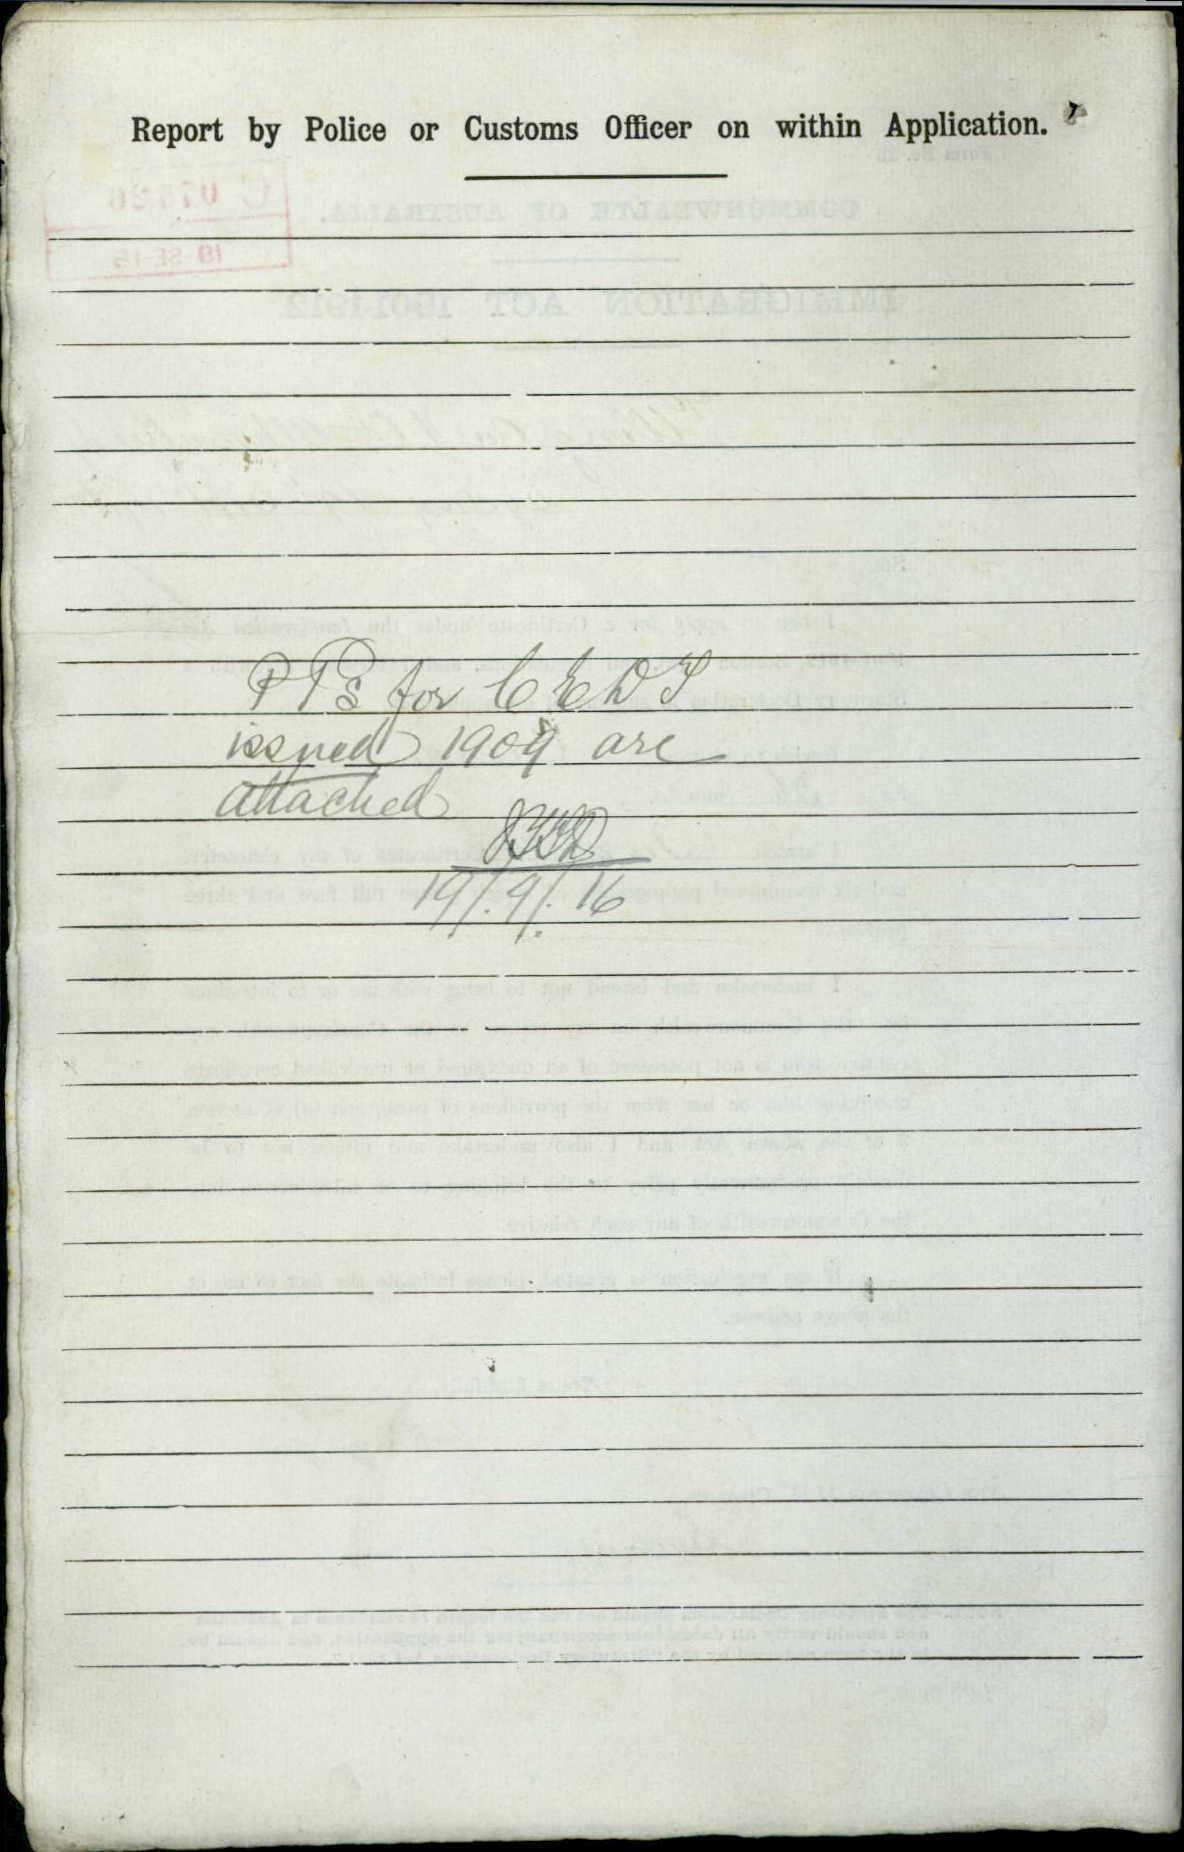 Report by Police or Customs Officer on within Application.
P Ps for C E D T
issued 1909 are
attached
19/.9/.16